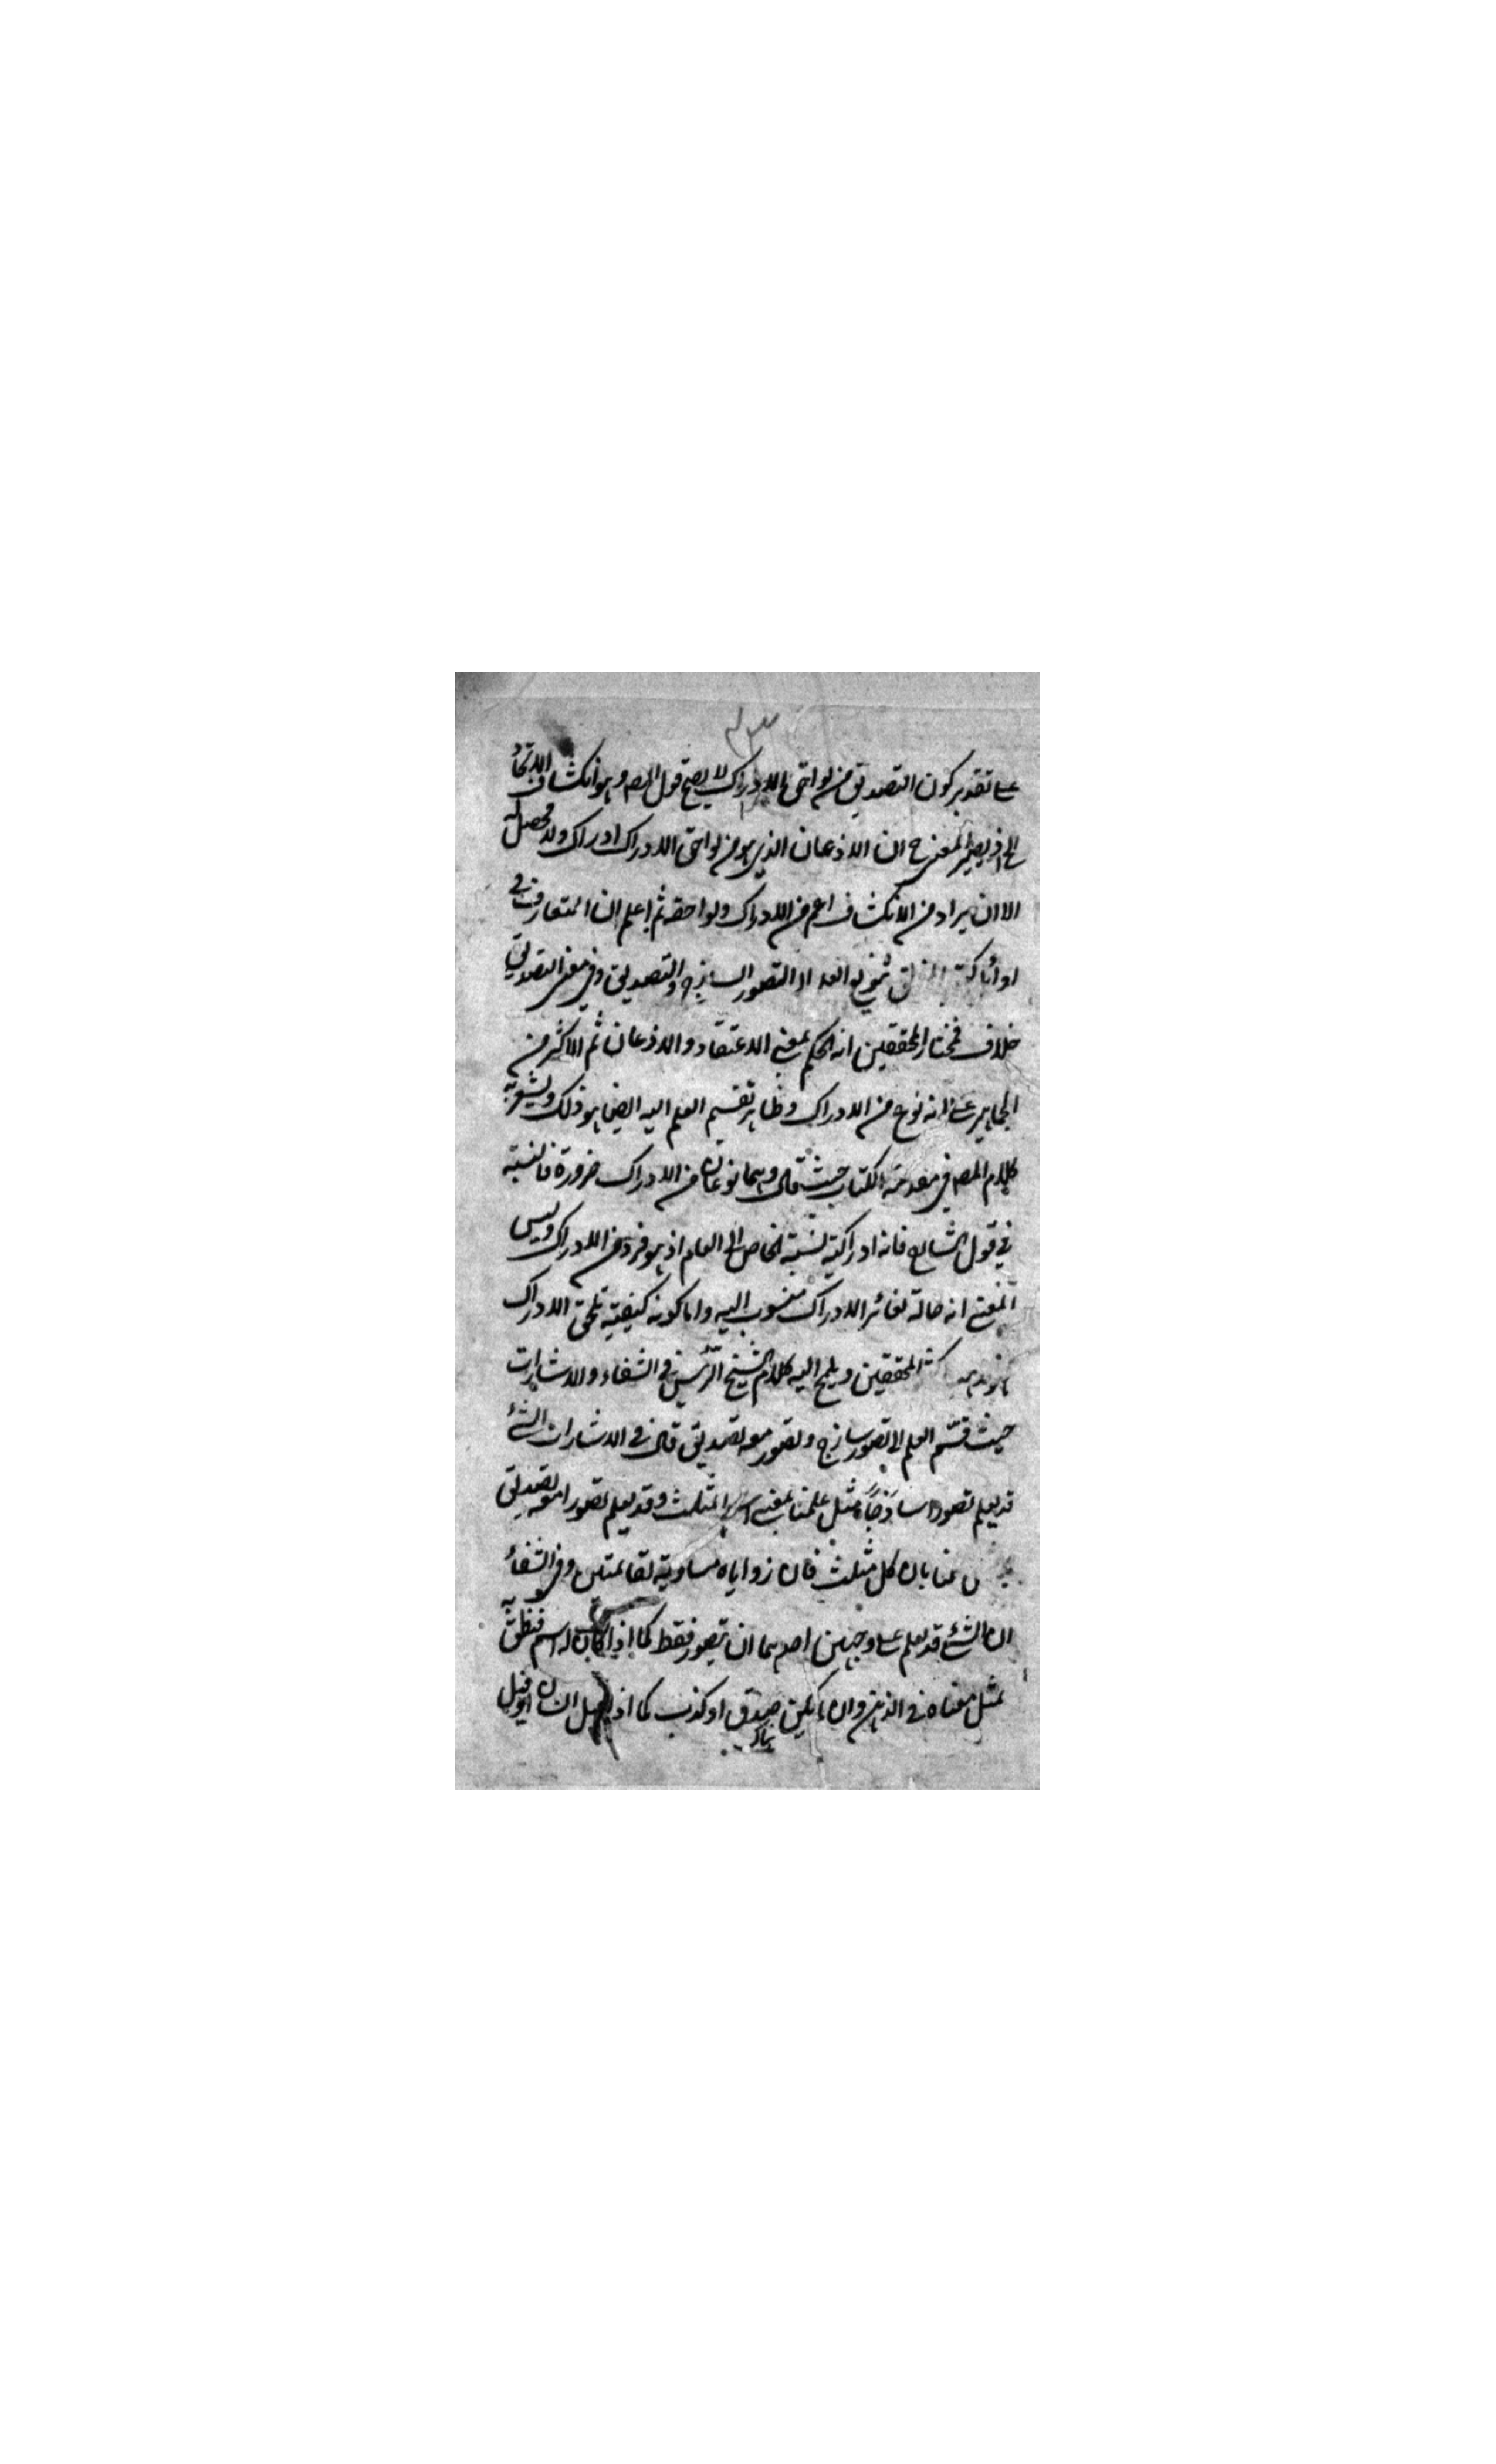 على تقدير كون التصديق من لواحق الادراك لا يصح قول المص وهو انكشاف الاتحاد
الخ اذ يصير المعنى ح ان الاذعان الذي هو من لواحق الادراك ادراك ولا محصل له
الا ان يراد من الانكشاف اعم من الادراك ولواحقه ثم اعلم ان المتعارف في
اوائل كتب تنويع العلم الى التصور الساذج والتصديق وفي معنى التصديق
خلاف فمختار المحققين انه الحكم بمعنى الاعتقاد والاذعان ثم الاكثر من
الجماهير على انه نوع من الادراك وظاهر تقسيم العلم اليه ايضا هو ذلك ويشعر به
كلام المص في مقدمة الكتاب حيث قال وهما نوعان من الادراك ضرورة فالنسبة
في قول الشارح فانه ادراكية نسبة الخاص الى العام اذ هو فرد من الادراك وليس
المعنى انه حالة تغائر الادراك منسوب اليه واما كونه كيفية تلحق الادراك
المحققين ويلمح اليه كلام الشيخ الرئيس في الشفاء والاشارات
حيث قسّم العلم الى تصور ساذج وتصور معه تصديق قال في الاشارات الشئ
قد يعلم تصورا ساذجا مثل علمنا بمعنى اسم المثلث وقد يعلم تصورا معه تصديق
علمنا بان كل مثلث فان زواياه مساوية لقائمتين وفي الشفاء
ان الشئ قد يعلم على وجهين احدهما ان يتصور فقط كما اذا كان له اسم فنطق به
تمثل معناه في الذهن وان لم يكن هناك صدق او كذب كما اذا قيل انسان او قيل